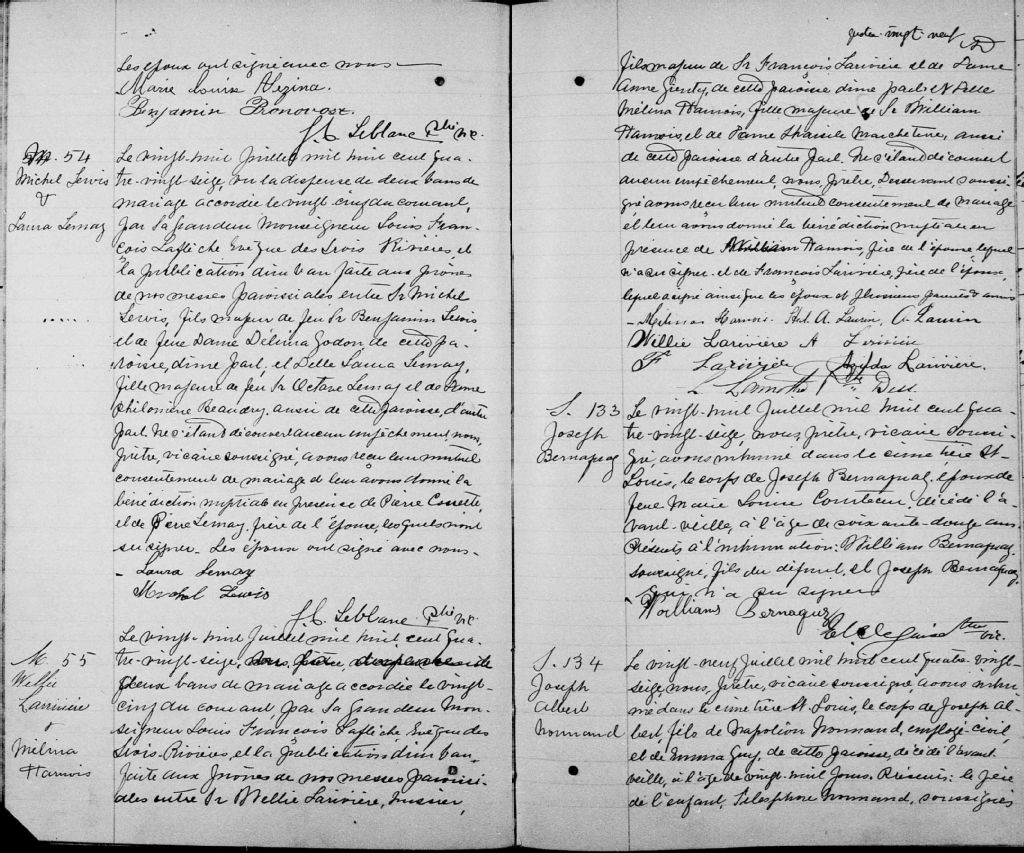 Les époux ont signé avec nous
Marie Louise Vézina
Benjamin Pronovost
J. E. Leblanc Ptre vic.
M. 54
Michel Lewis
&
Laura Lemay
Le vingt-huit Juillet mil huit cent qua-
tre-vingt seize, vu la dispense de deux bans de
mariage accordée le vingt-cinq du courant,
par Sa Grandeur Monseigneur Louis Fran-
çois Laflèche Evêque des Trois Rivières et
la publication d'un ban faite aux prônes
de nos messes paroissiales entre Sr Michel
Lewis, fils majeur de feu Sr Benjamin Lewis
et de feue Dame Délima Godon de cette pa-
roisse, d'une part, et Delle Laura Lemay,
fille majeure de feu Sr Octave Lemay et de Dame
Philomène Beaudry, aussi de cette paroisse, d'autre
part. Ne s'étant découvert aucun empêchement, nous,
prêtre, vicaire soussigné, avons reçu leur mutuel
consentement de mariage et leur avons donné la
bénédiction nuptiale en présence de Pierre Cossette
et de Lemay, frère de l'épouse, lesquels n'ont
su signer. Les époux ont signé avec nous.
Laura Lemay
Michel Lewis
J. E. Leblanc Ptre vic.
M. 55
Wellie
Larivière
&
Mélina
Hamois
Le vingt-huit Juillet mil huit cent qua-
tre-vingt-seize,
deux bans de mariage accordée le vingt-
cinq du courant par Sa Grandeur Mon-
seigneur Louis François Laflèche, Evêque des
Trois-Rivières, et la publication d'un ban
faite aux prônes de nos messes paroissi-
ales entre Sr Wellie Larivière, huissier,
quatre-vingt-neuf
fils majeur de Sr François Larivière et de Dame
Anne Genty, de cette paroisse d'une part et Delle
Mélina Hamois, fille majeure de Sr William
Hamois, et de Dame Marcheterre, aussi
de cette paroisse d'autre part. Ne s'étant découvert
aucun empêchement, nous, prêtre, Desservant soussi-
gné avons reçu leur mutuel consentement de mariage
et leur avons donné la bénédiction nuptiale en
présence de William Hamois, père de l'épouse lequel
n'a su signer et de François Larivière, père de l'époux,
lequel a signé ainsi que les époux et plusieurs parents & amis
Melina Hamois. A. Laurin,
Willie Larivière A
F Larivière Larivière.
L. Lamothe Ptre Dess.
S. 133
Joseph
Bernaquez
Le vingt-huit Juillet mil huit cent qua-
tre-vingt-seize, nous, prêtre, vicaire soussi-
gné, avons inhumé dans le cimetière St-
Louis, le corps de Joseph Bernaquez, époux de
feue Marie Louise Couture, décédé l'a-
vant-veille, à l'âge de soixante-douze ans.
Présents à l'inhumation: William Bernaquez
soussigné, fils du défunt, et Joseph Bernaquez,
qui n'a su signer
William Bernaquez
Ptre vic.
S. 134
Joseph
Albert
Normand
Le vingt-neuf Juillet mil huit cent quatre-vingt-
seize, nous, prêtre, vicaire soussigné avons inhu-
mé dans le cimetière St. Louis, le corps de Joseph Al-
bert fils de Napoléon Normand, employé civil
et de Emma Guy, de cette paroisse, décédé l'avant
veille, à l'âge de vingt-huit jours. Présents: le père
de l'enfant, Télesphore Normand, soussignés